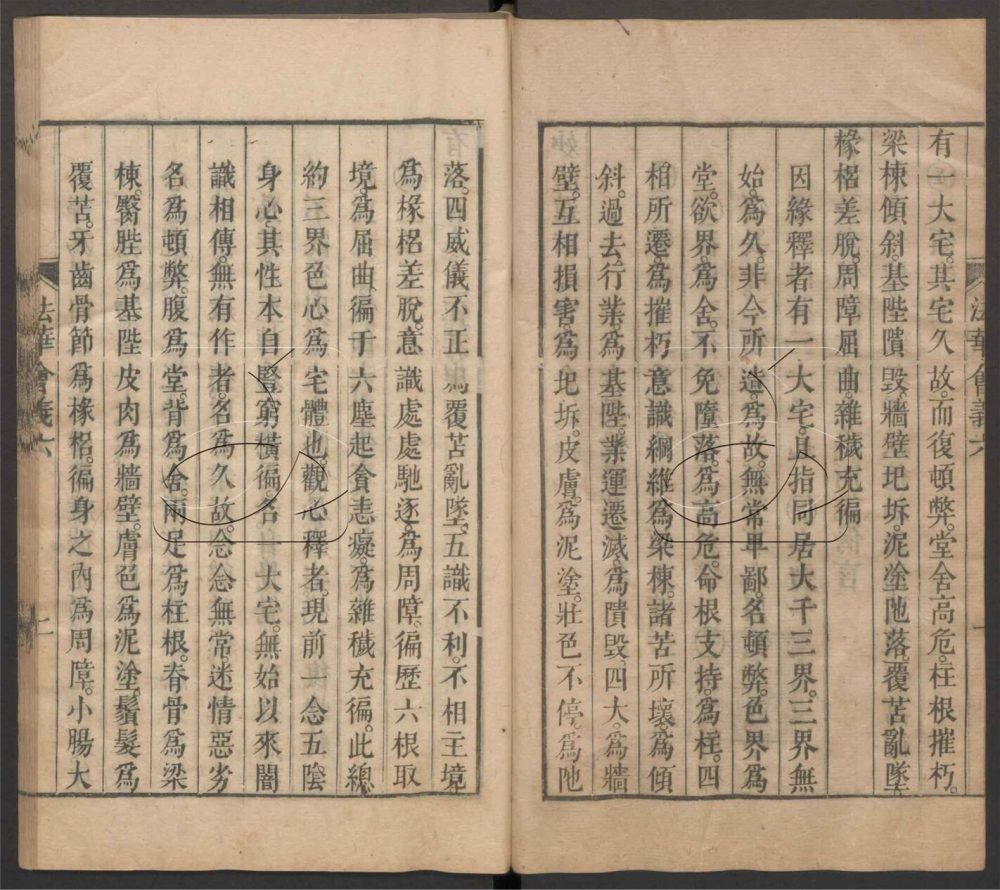 有一大宅。其宅久故。而復頓弊。堂舍高危。柱根摧朽。
梁棟傾斜。基陛隤毀。牆壁圯坼。泥塗阤落。覆苫亂墜。
椽梠差脫。周障屈曲。雜穢充徧
因緣釋者有一大宅。且指同居大千三界。三界無
始。爲久。非今所造。爲故。無常卑鄙。名頓弊。色界爲
堂。欲界。爲舍。不免墮落。爲高危。命根支持。爲柱。四
相所遷。爲摧朽。意識綱維。爲梁棟。諸苦所壞。爲傾
斜。過去行業。爲基陛。業運遷滅。爲隤毀。四大。爲牆
壁。互相損害。爲圯坼。皮膚。爲泥塗。壯色不停。爲阤
法華會義六
一
落。四威儀不正爲覆苫亂墜。五識不利。不相主境。
爲椽梠差脫。意識處處馳逐。爲周障。徧歷六根取
境。爲屈曲。徧于六塵起貪恚癡。爲雜穢充徧。此總
約三界色心。爲宅體也。觀心釋者。現前一念五陰
身心。其性本自豎窮橫徧。名一大宅。無始以來闇
識相傳。無有作者。名爲久故。念念無常迷情惡劣
名爲頓弊。腹爲堂。背爲舍。兩足爲柱根。脊骨爲梁
棟。臀胜爲基陛。皮肉爲牆壁。膚色爲泥塗。鬚髮爲
覆苫。牙齒骨節爲椽梠。徧身之內爲周障。小腸大
法華會義六
二